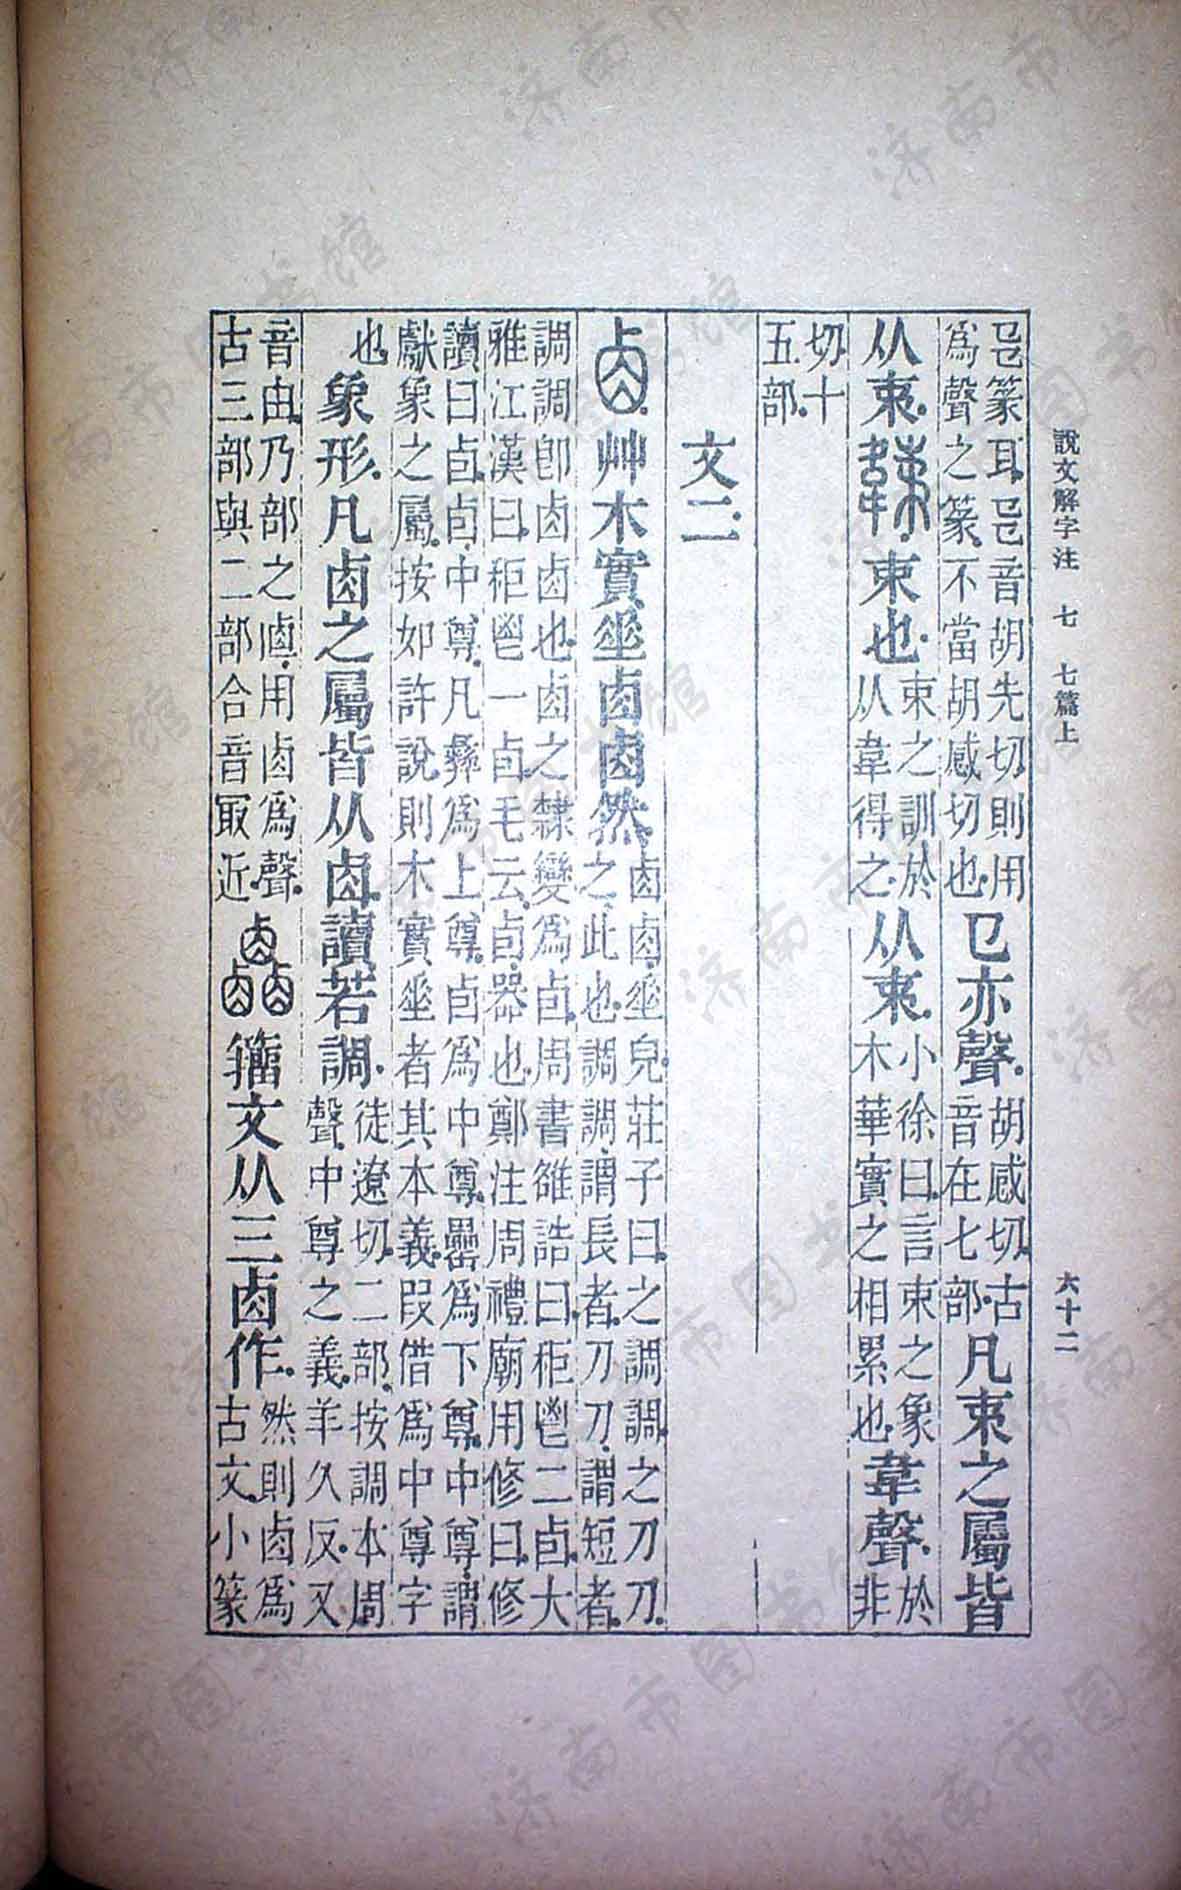 說文解字注 七 七篇上
六十二
𢎘篆耳.𢎘音胡先切.則用
爲聲之篆.不當胡感切也.
𢎘亦聲.
胡感切.古
音在七部.
凡𣐺之屬皆
从𣐺.
𣐺.束也.
束之訓於
从韋得之.
从𣐺.
小徐曰.言束之象
木華實之相累也.
韋聲.
於
非
切.十
五部.
文二.
𠧪.艸木實𠂹𠧪𠧪然.
𠧪𠧪.𠂹皃.莊子曰.之調調之刀刀.
之.此也.調調.謂長者.刀刀.謂短者.
調調卽𠧪𠧪也.𠧪之隸變爲卣.周書雒誥曰.秬鬯二卣.大
雅江漢曰.秬鬯一卣.毛云.卣.器也.鄭注周禮廟用修曰.修
讀曰卣.卣.中尊.凡彝爲上尊.卣爲中尊.罍爲下尊.中尊.謂
獻象之屬.按如許說.則木實𠂹者其本義.叚借爲中尊字
也.
象形.凡𠧪之屬皆从𠧪.讀若調.
徒遼切.二部.按調本周
聲.中尊之義.羊久反.又
音由.乃部之𠧴.用𠧪爲聲.
古三部與二部合音冣近.
籒文从三𠧪作.
然則𠧪爲
古文.小篆